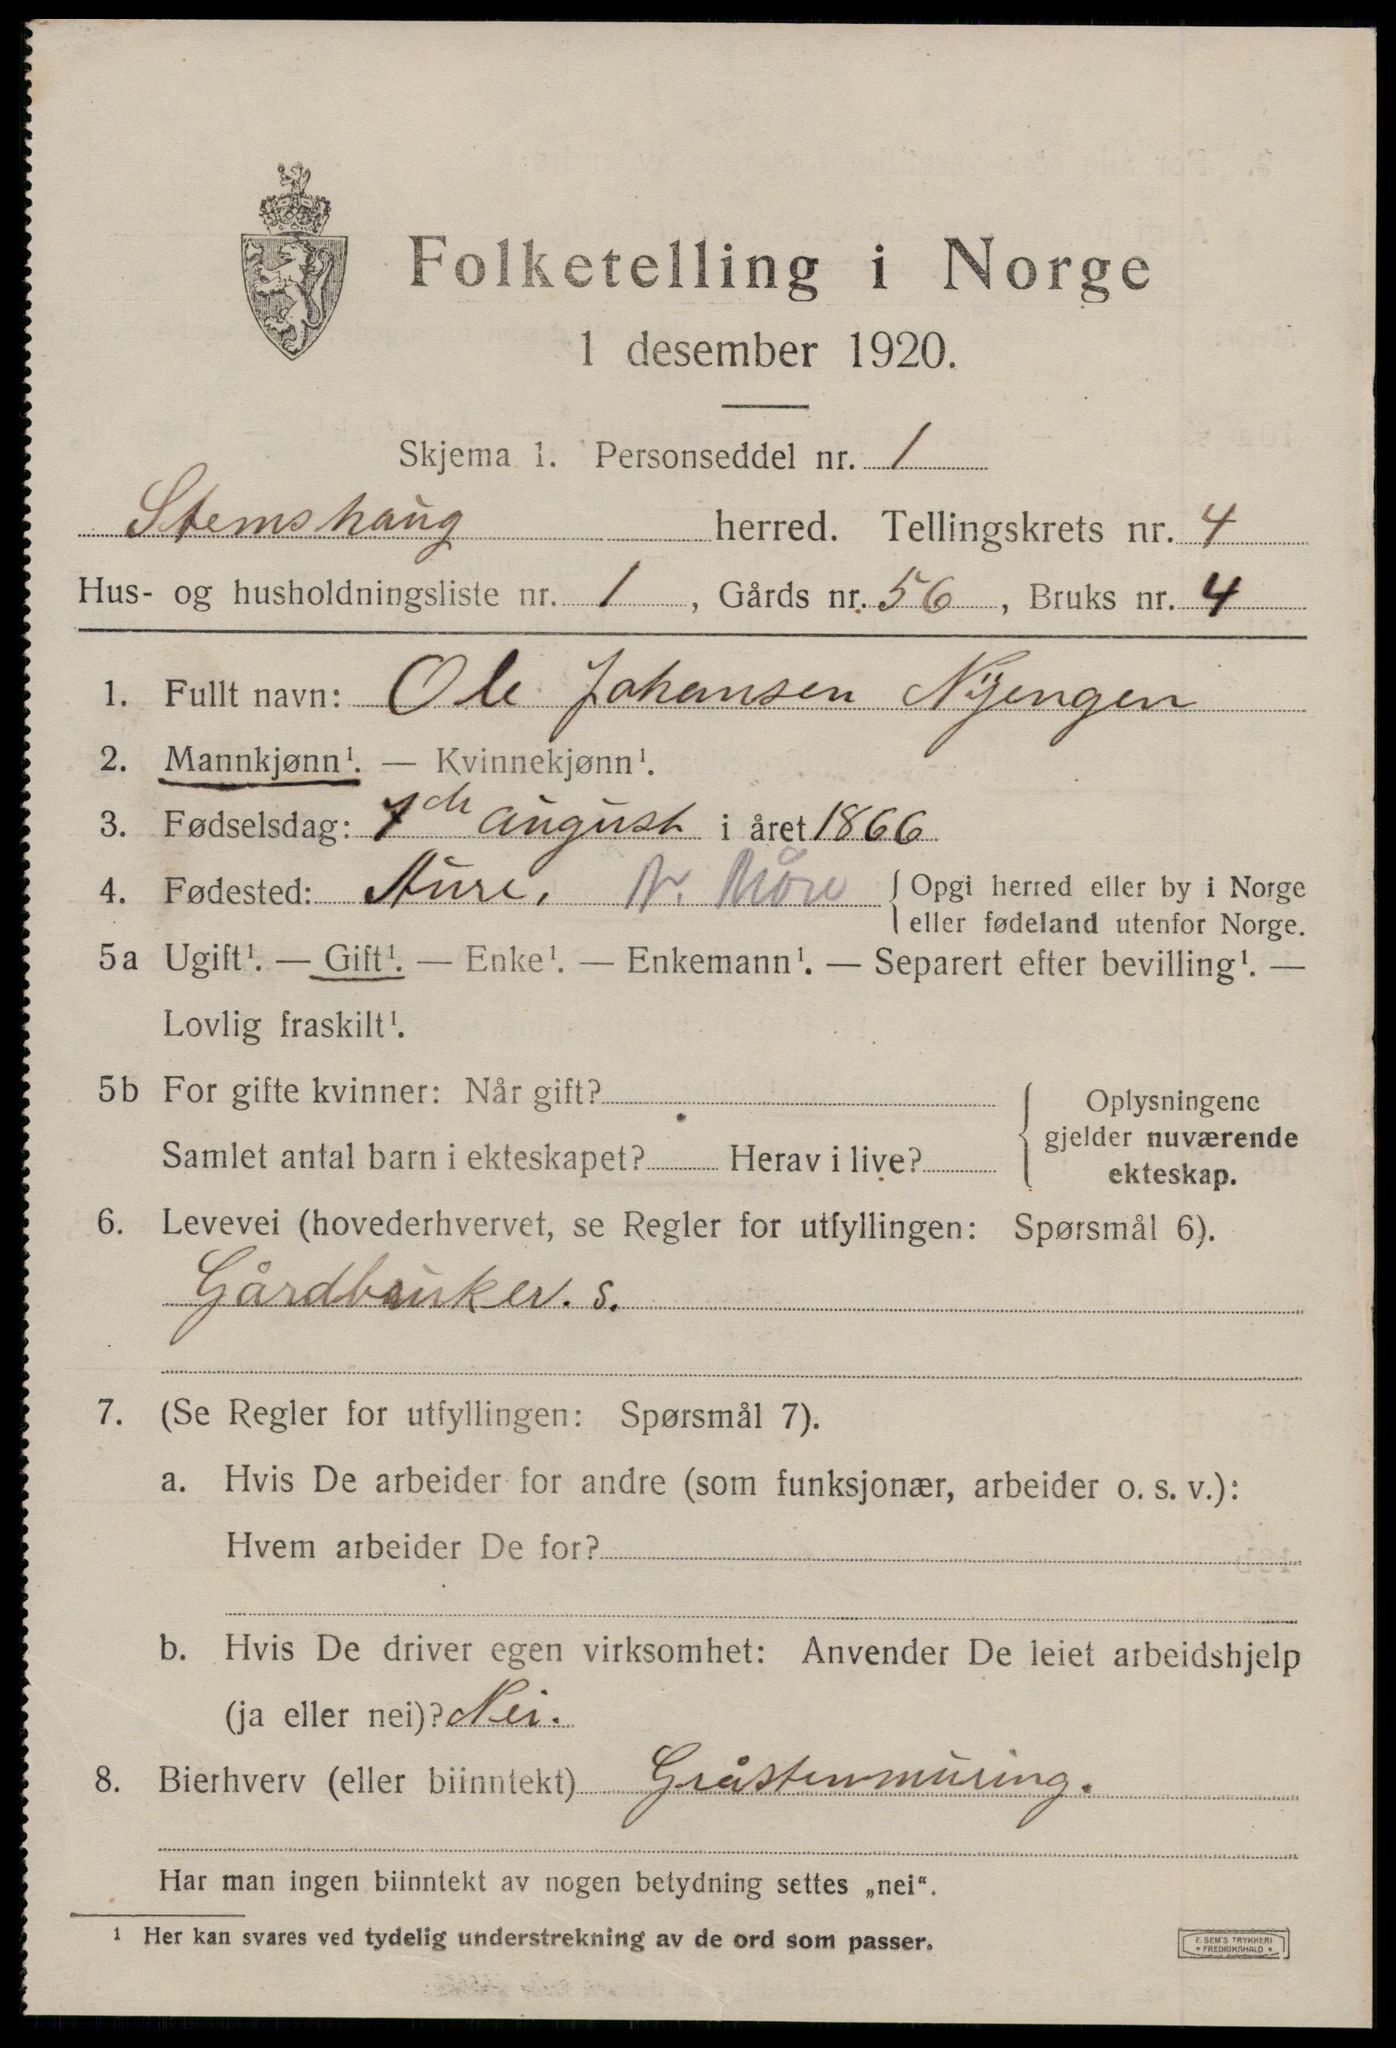 Folketelling i Norge
1 desember 1920.
Skjema 1. Personseddel nr. 1
Stemshaug herred. Tellingskrets nr. 4
Hus- og husholdningsliste nr. 1, Gårds nr. 56, Bruks nr. 4
1. Fullt navn: Ole Johansen Nyengen
2. Mannkjønn¹. — Kvinnekjønn¹.
3. Fødselsdag: 7de august i året 1866
4. Fødested: Aure, N. Møre { Opgi herred eller by i Norge
eller fødeland utenfor Norge.
5a Ugift¹. — Gift¹. — Enke¹. — Enkemann¹. — Separert efter bevilling¹. —
Lovlig fraskilt¹.
5b For gifte kvinner: Når gift?
Samlet antal barn i ekteskapet? Herav i live?
{ Oplysningene
gjelder nuværende
ekteskap.
6. Levevei (hovederhvervet, se Regler for utfyllingen: Spørsmål 6).
Gårdbruker. s.
7. (Se Regler for utfyllingen: Spørsmål 7).
a. Hvis De arbeider for andre (som funksjonær, arbeider o. s. v.):
Hvem arbeider De for?
b. Hvis De driver egen virksomhet: Anvender De leiet arbeidshjelp
(ja eller nei)? Nei.
8. Bierhverv (eller biinntekt) Gråstenmuring.
Har man ingen biinntekt av nogen betydning settes „nei“.
¹ Her kan svares ved tydelig understrekning av de ord som passer.
E. SEM'S TRYKKERI
* FREDRIKSHALD *